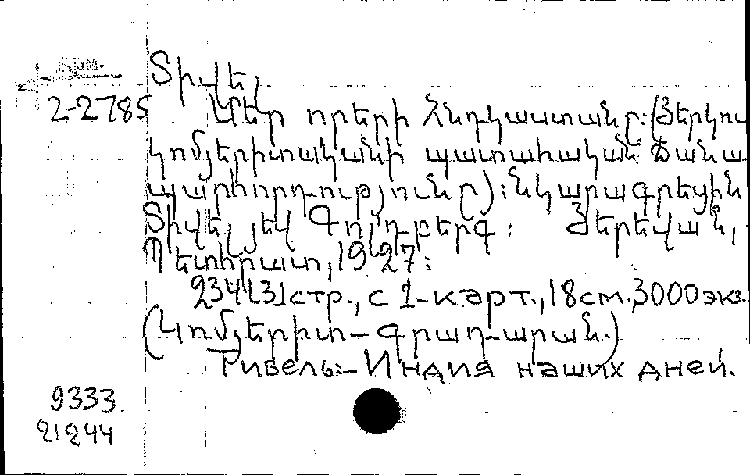 Տիվել.
2-2785 Մեր որերի Հնդկաստանը։(Յերկու
կոմյերիտականի պատահական ճանա
պարհորդությունը)։Նկարագրեցին
Տիվել յեվ Գոլդբերգ։ Յերեվան,
Պետհրատ, 1927։
234[3]стр., с 1-карт., 18см. 3000экз.
(Կոմյերիտ-գրադ-արան.)
Тивель:-Индия наших дней.
9333.
21244